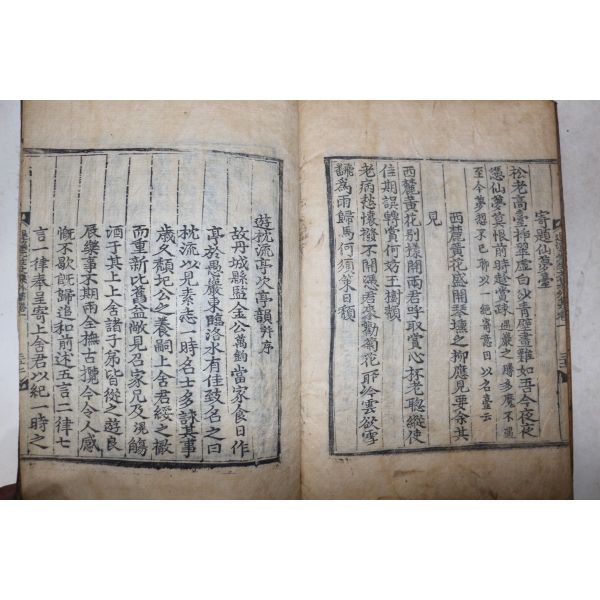 寄題仙夢臺
松老高臺栢翠虛白沙青壁畫難如吾今夜夜
憑仙夢莫恨前時趁賞疎
至今夢想不已聊以一絶寓意曰以名臺云
西麓黃花盛開琴壇之柳應見要余共
見
西麓黃花别樣開兩君呼取賞心杯老聰縱使
佳期誤轉賞何妨玉樹頹
老病愁懷撥不開菊花
歸馬何須
遊枕流亭次亭韻并序
故丹城縣監金公萬鈞當家食日作
亭於愚巖東臨洛水有佳致名之曰
枕流以見素志一時名士多詩其事
歲久頹圮公之養嗣上舍君綏之撤
而重新比舊益敞見召家兄及滉觴
酒于其上上舍諸子弟皆從之遊良
辰樂事不期兩全撫古攬今令人感
慨不歇旣歸追和前述五言二律七
言一律奉呈寄上舍君以紀一時之